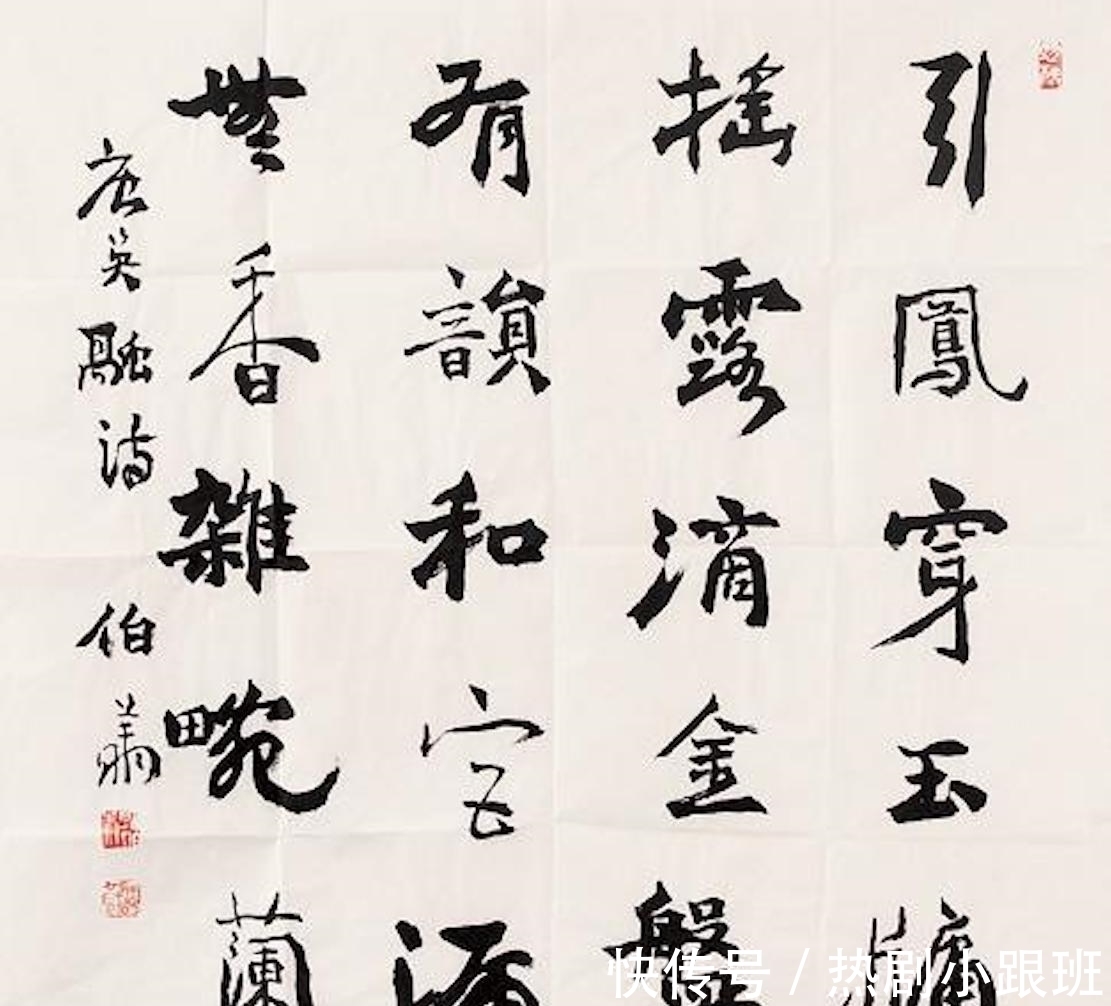 引鳳穿玉牖
搖露滴金盤
有韻和宮漏
無香雜畹蘭
唐吳融詩 伯翔
快传号 / 热剧小跟班